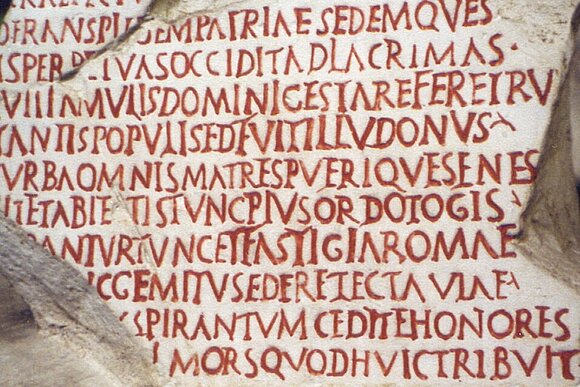 SEMPATRIAESEDEMQVES
ISPERPETVASOCCIDITADLACRIMAS·
AMVLISDOMINIGESTAREFERETRV
TANTISPOPVLISEDFVITILLVDONVS
VRBAOMNISMATRESPVERIQVESENES
TETABIETISTVNCPIVSORDOTOGIS
RANTVRTVNCETFASTIGIAROMAE
ICGEMITVSEDEREIECTAVIAE
SPIRANTVMCEDITEHONORES
MORSQVODHVICTRIBVIT